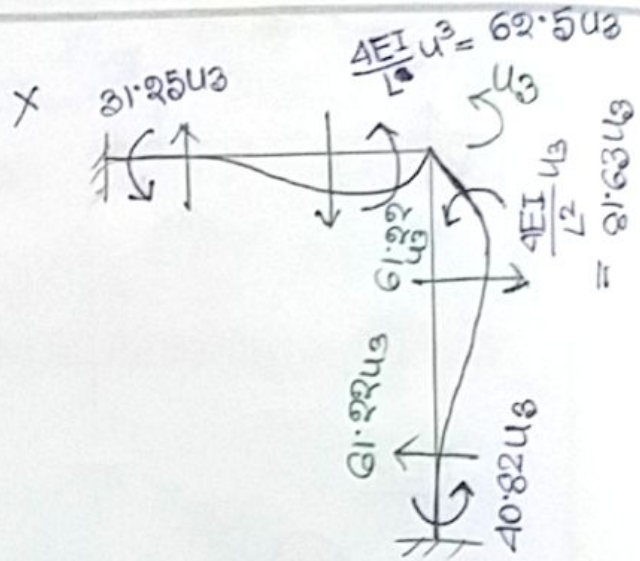 X
31.25u3
4EI/L u3 = 62.5u3
u3
61.22
u3
4EI/L2 u3
= 81.63u3
61.22u3
40.82u3